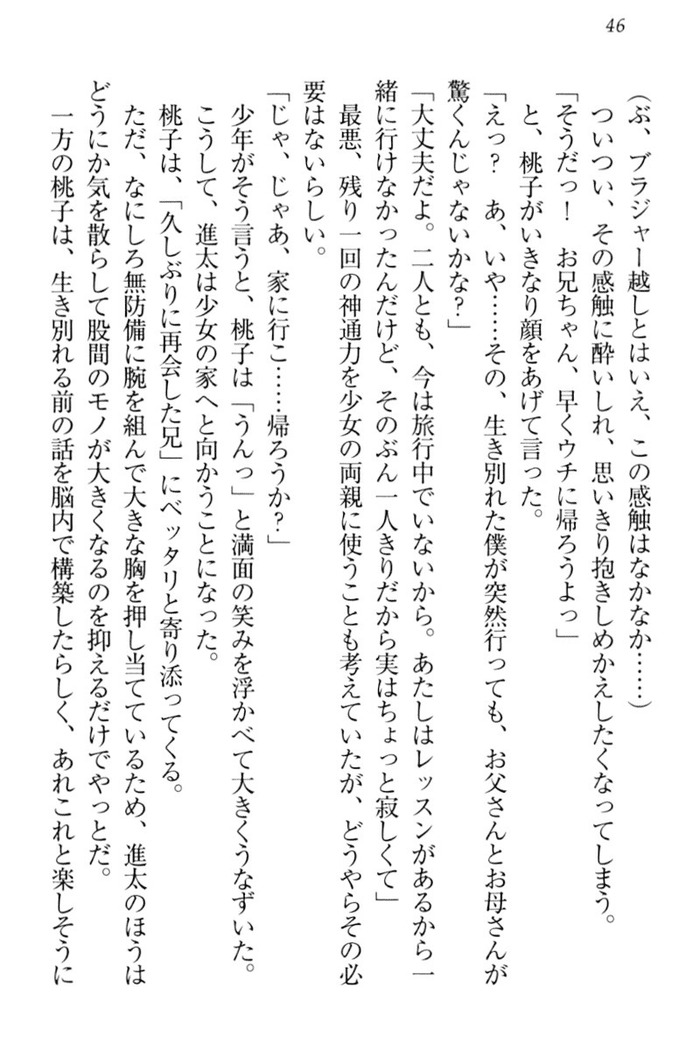 46
(ぶ、ブラジャー越しとはいえ、この感触はなかなか……)
ついつい、その感触に酔いしれ、思いきり抱きしめかえしたくなってしまう。
「そうだっ！　お兄ちゃん、早くウチに帰ろうよっ」
と、桃子がいきなり顔をあげて言った。
「えっ？　あ、いや……その、生き別れた僕が突然行っても、お父さんとお母さんが
驚くんじゃないかな？」
「大丈夫だよ。二人とも、今は旅行中でいないから。あたしはレッスンがあるから一
緒に行けなかったんだけど、そのぶん一人きりだから実はちょっと寂しくて」
最悪、残り一回の神通力を少女の両親に使うことも考えていたが、どうやらその必
要はないらしい。
「じゃ、じゃあ、家に行こ……帰ろうか？」
少年がそう言うと、桃子は「うんっ」と満面の笑みを浮かべて大きくうなずいた。
こうして、進太は少女の家へと向かうことになった。
桃子は、「久しぶりに再会した兄」にベッタリと寄り添ってくる。
ただ、なにしろ無防備に腕を組んで大きな胸を押し当てているため、進太のほうは
どうにか気を散らして股間のモノが大きくなるのを抑えるだけでやっとだ。
一方の桃子は、生き別れる前の話を脳内で構築したらしく、あれこれと楽しそうに